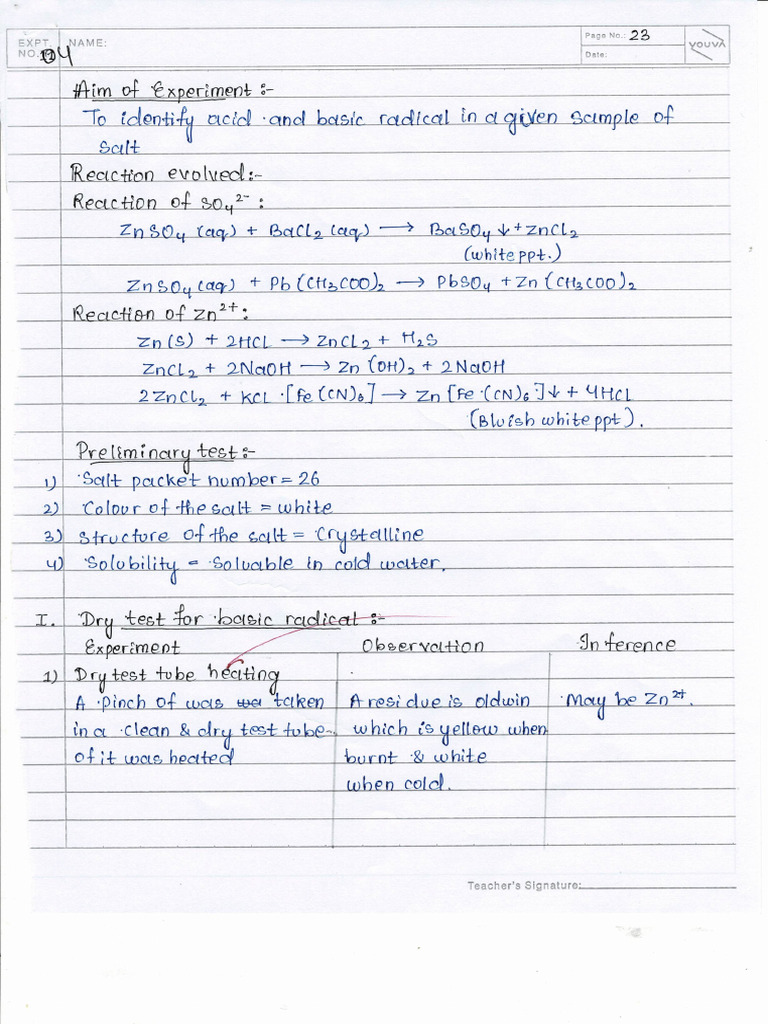 EXPT. NO. 04 NAME:
Page No.: 23
Date:
YOUVA
Aim of Experiment :-
To identify acid and basic radical in a given sample of
salt
Reaction evolved:-
Reaction of SO₄²⁻ :
ZnSO₄ (aq) + BaCl₂ (aq) → BaSO₄ ↓ + ZnCl₂
(white ppt.)
ZnSO₄ (aq) + Pb (CH₃COO)₂ → PbSO₄ + Zn (CH₃COO)₂
Reaction of Zn²⁺ :
Zn (S) + 2HCL → ZnCL₂ + H₂S
ZnCL₂ + 2NaOH → Zn (OH)₂ + 2NaOH
2ZnCL₂ + KCL · [Fe (CN)₆] → Zn [Fe · (CN)₆] ↓ + 4HCl
(Bluish white ppt).
Preliminary test :-
1) Salt packet number = 26
2) Colour of the salt = white
3) Structure of the salt = Crystalline
4) Solubility = Soluable in cold water.
I. Dry test for basic radical :-
Experiment Observation Inference
1) Dry test tube heating
A pinch of was taken A residue is oldwin May be Zn²⁺.
in a clean & dry test tube which is yellow when
of it was heated burnt & white
when cold.
Teacher's Signature: